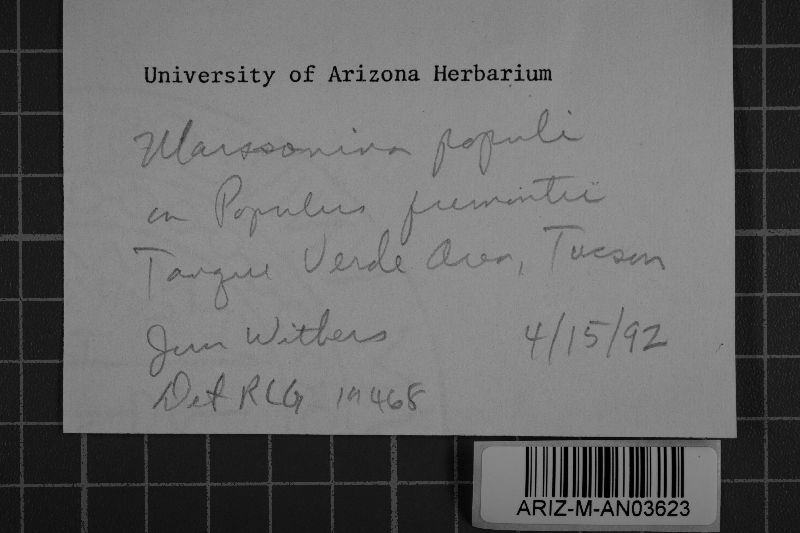 University of Arizona Herbarium
Marssonina populi
on Populus fremontii
Tanque Verde Area, Tucson
Jim Withers 4/15/92
Det RLG
ARIZ-M-AN03623